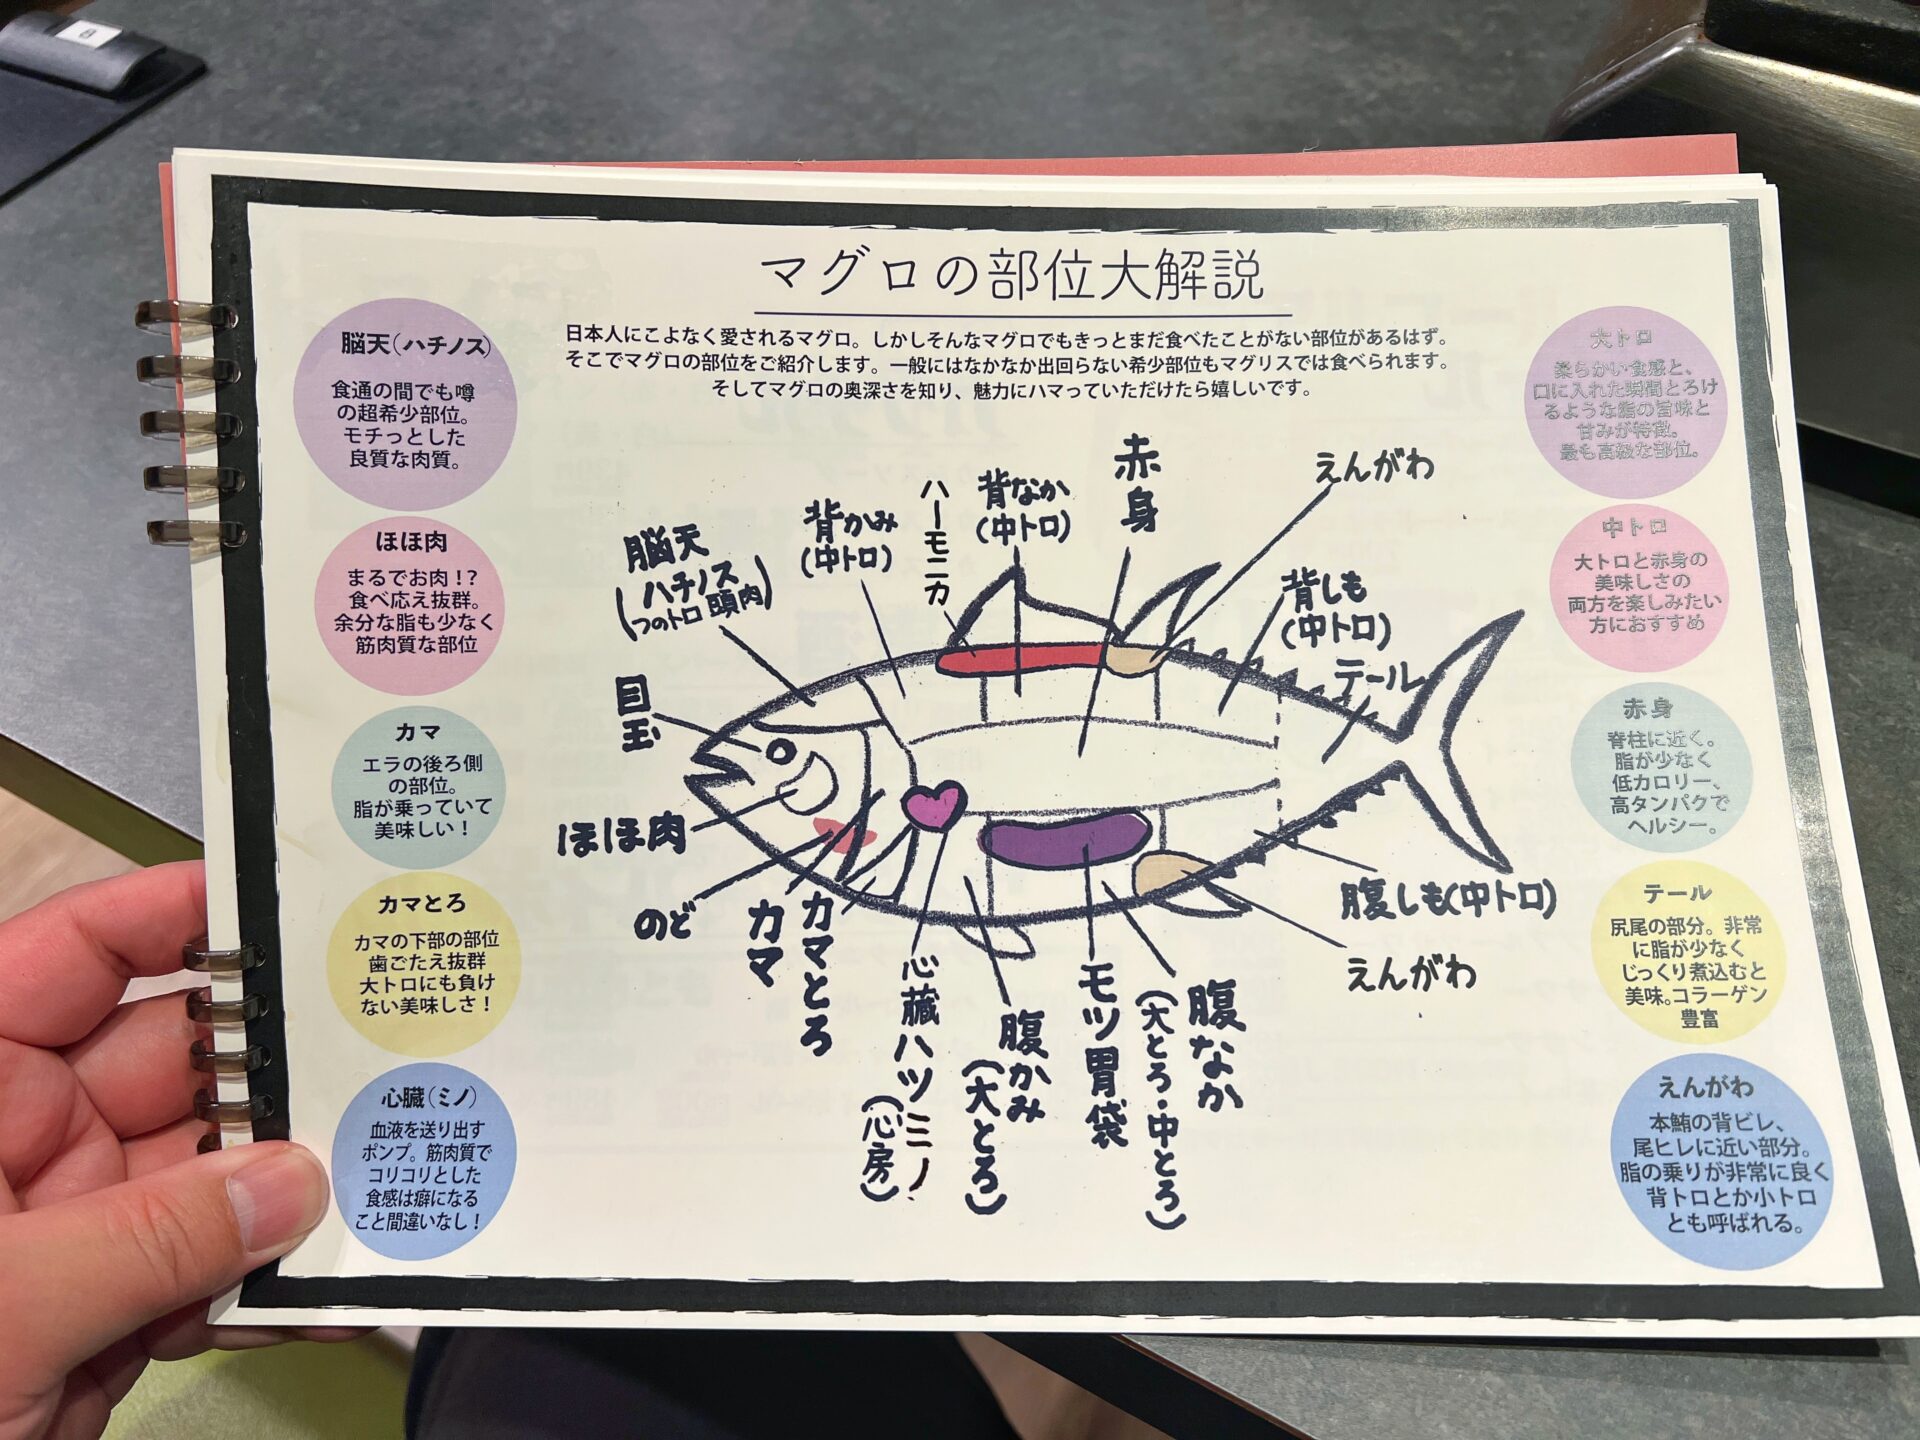 マグロの部位大解説
日本人にこよなく愛されるマグロ。しかしそんなマグロでもきっとまだ食べたことがない部位があるはず。
そこでマグロの部位をご紹介します。一般にはなかなか出回らない希少部位もマグリスでは食べられます。
そしてマグロの奥深さを知り、魅力にハマっていただけたら嬉しいです。
脳天(ハチノス)
食通の間でも噂
の超希少部位。
モチっとした
良質な肉質。
ほほ肉
まるでお肉!?
食べ応え抜群。
余分な脂も少なく
筋肉質な部位
カマ
エラの後ろ側
の部位。
脂が乗っていて
美味しい!
カマとろ
カマの下部の部位
歯ごたえ抜群
大トロにも負け
ない美味しさ!
心臓(ミノ)
血液を送り出す
ポンプ。筋肉質で
コリコリとした
食感は癖になる
こと間違いなし!
脳天
(ハチノス
つのトロ 頭肉)
背かみ
(中トロ)
ハーモニカ
背なか
(中トロ)
赤身
えんがわ
背しも
(中トロ)
テール
目玉
ほほ肉
のど
カマ
カマとろ
心臓ハツミノ
(心房)
腹かみ
(大とろ)
モツ胃袋
腹なか
(大とろ・中とろ)
えんがわ
腹しも(中トロ)
大トロ
柔らかい食感と、
口に入れた瞬間とろけ
るような脂の旨味と
甘みが特徴。
最も高級な部位。
中トロ
大トロと赤身の
美味しさの
両方を楽しみたい
方におすすめ
赤身
脊柱に近く。
脂が少なく
低カロリー、
高タンパクで
ヘルシー。
テール
尻尾の部分。非常
に脂が少なく
じっくり煮込むと
美味。コラーゲン
豊富
えんがわ
本鮪の背ビレ、
尾ヒレに近い部分。
脂の乗りが非常に良く
背トロとか小トロ
とも呼ばれる。